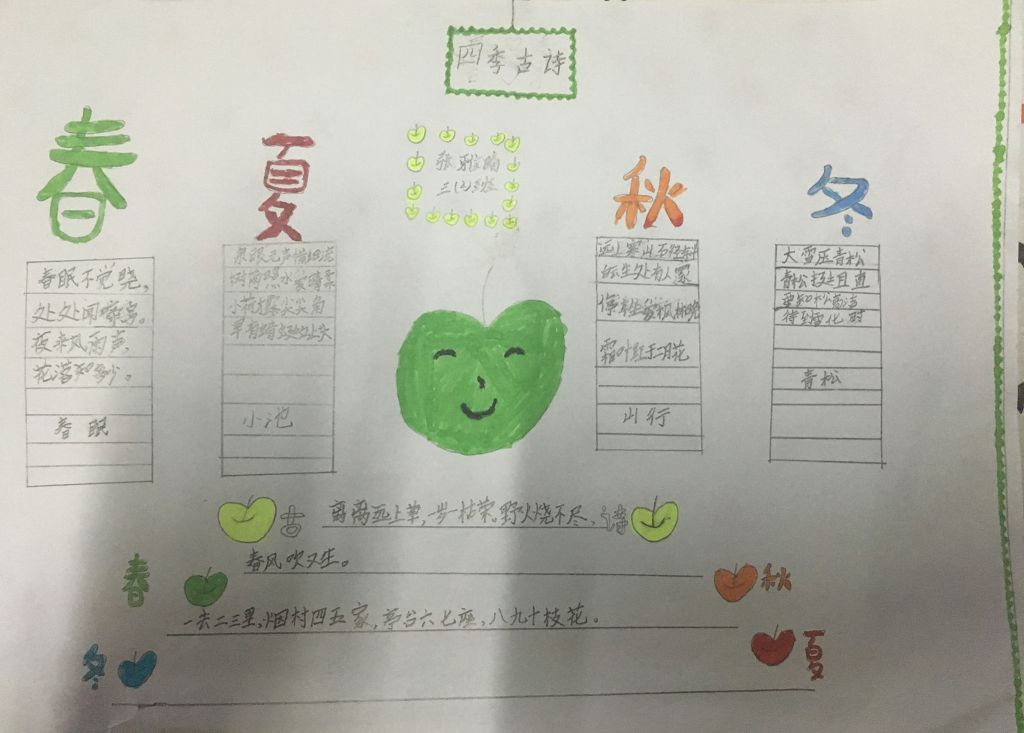 四季古诗
春
夏
秋
冬
张雅
三(2)班
春眠不觉晓,
处处闻啼鸟。
夜来风雨声,
花落知多少。
春眠
泉眼无声惜细流
树阴照水爱晴柔
小荷才露尖尖角
早有蜻蜓立头
小池
远上寒山石径斜
生处有人家
停车坐爱枫林晚
霜叶红于二月花
山行
大雪压青松
青松挺且直
要知松高洁
待到雪化时
青松
古 离离远上草,一岁一枯荣,野火烧不尽, 诗
春风吹又生。
春 秋
一去二三里,烟村四五家,亭台六七座,八九十枝花。
冬 夏